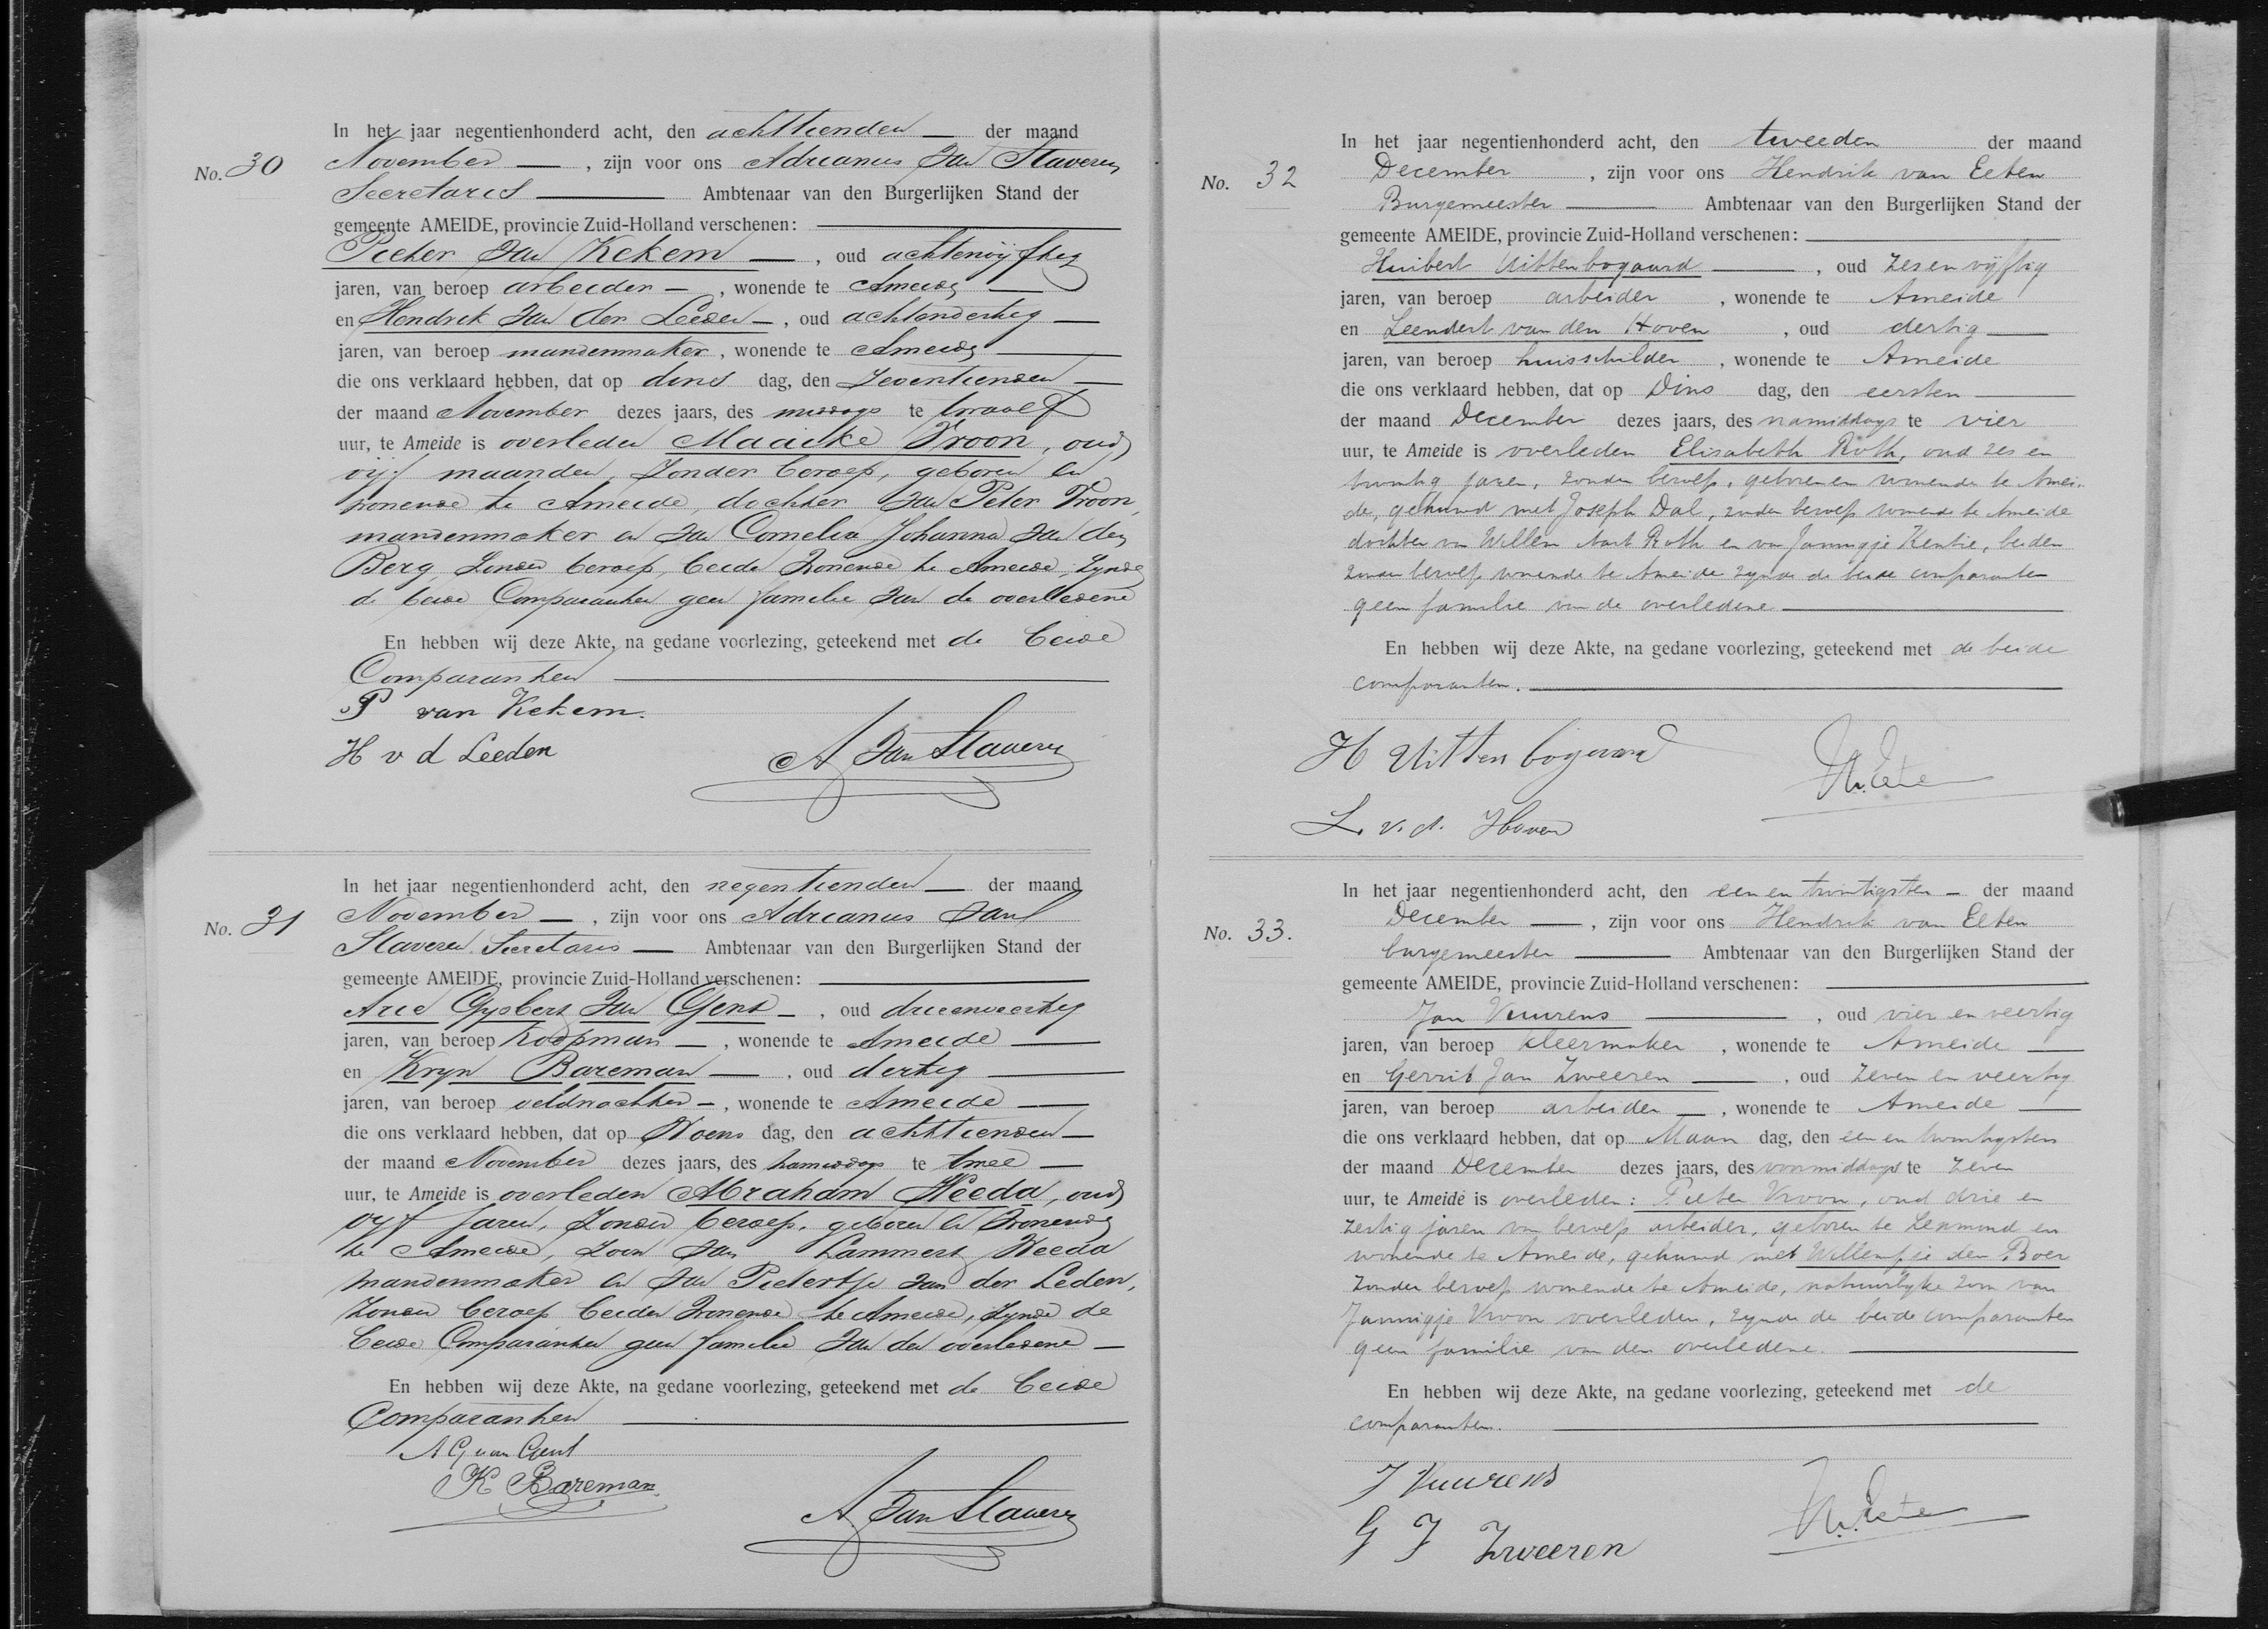 No. 30
In het jaar negentienhonderd acht, den achttienden der maand
November, zijn voor ons Adrianus van Staveren
Secretaris Ambtenaar van den Burgerlijken Stand der
gemeente AMEIDE, provincie Zuid-Holland verschenen:
Pieter van Kekem, oud achtenvijftig
jaren, van beroep arbeider, wonende te Ameide
en Hendrik van der Leeden, oud achtendertig
jaren, van beroep mandenmaker, wonende te Ameide
die ons verklaard hebben, dat op dins dag, den zeventienden
der maand November dezes jaars, des middags te twaalf
uur, te Ameide is overleden Maaike Vroon, oud
vijf maanden, zonder beroep, geboren en
wonende te Ameide, dochter van Peter Vroon,
mandenmaker en van Cornelia Johanna van den
Berg, zonder beroep, beide wonende te Ameide, zynde
de beide Comparanten geen familie van de overledene
En hebben wij deze Akte, na gedane voorlezing, geteekend met de beide
Comparanten
P van Kekem.
H v d Leeden
A van Staveren
No. 31
In het jaar negentienhonderd acht, den negentienden der maand
November, zijn voor ons Adrianus van
Staveren Secretaris Ambtenaar van den Burgerlijken Stand der
gemeente AMEIDE, provincie Zuid-Holland verschenen:
Arie Gysbert van Gent, oud drieenveertig
jaren, van beroep Koopman, wonende te Ameide
en Kryn Bareman, oud dertig
jaren, van beroep veldwachter, wonende te Ameide
die ons verklaard hebben, dat op Woens dag, den achttienden
der maand November dezes jaars, des namiddags te twee
uur, te Ameide is overleden Abraham Weeda, oud
vyf jaren, zonder beroep, geboren en wonende
te Ameide, zoon van Lammert Weeda
mandenmaker en van Pietertje van der Leden,
zonder beroep beiden wonende te Ameide, zynde de
beide Comparanten geen familie van den overledene
En hebben wij deze Akte, na gedane voorlezing, geteekend met de beide
Comparanten
A G van Gent
K Bareman
A. van Staveren
No. 32
In het jaar negentienhonderd acht, den tweeden der maand
December, zijn voor ons Hendrik van Eeten
Burgemeester Ambtenaar van den Burgerlijken Stand der
gemeente AMEIDE, provincie Zuid-Holland verschenen:
Huibert Uittenbogaard, oud zes en vyftig
jaren, van beroep arbeider, wonende te Ameide
en Leendert van den Hoven, oud dertig
jaren, van beroep huisschilder, wonende te Ameide
die ons verklaard hebben, dat op Dins dag, den eersten
der maand December dezes jaars, des namiddags te vier
uur, te Ameide is overleden Elisabeth Roth, oud zes en
twintig jaren, zonder beroep, geboren en wonende te Amei-
de, gehuwd met Joseph Dal, zonder beroep wonende te Ameide
dochter van Willem Aart Roth en van Jannigje Kentie, beiden
zonder beroep wonende te Ameide zynde de beide comparanten
geen familie van de overledene
En hebben wij deze Akte, na gedane voorlezing, geteekend met de beide
comparanten.
H Uittenbogaard
L. v. d. Hoven
No. 33.
In het jaar negentienhonderd acht, den een en twintigsten der maand
December, zijn voor ons Hendrik van Eeten
burgemeester Ambtenaar van den Burgerlijken Stand der
gemeente AMEIDE, provincie Zuid-Holland verschenen:
Jan Vuurens, oud vier en veertig
jaren, van beroep kleermaker, wonende te Ameide
en Gerrit Jan Zweeren, oud zeven en veertig
jaren, van beroep arbeider, wonende te Ameide
die ons verklaard hebben, dat op Maan dag, den een en twintigsten
der maand December dezes jaars, des voormiddags te zeven
uur, te Ameide is overleden: Pieter Vroon, oud drie en
zestig jaren van beroep arbeider, geboren te Lexmond en
wonende te Ameide, gehuwd met Willempje den Boer
zonder beroep wonende te Ameide, natuurlyke zoon van
Jannigje Vroon overleden, zynde de beide comparanten
geen familie van den overledene.
En hebben wij deze Akte, na gedane voorlezing, geteekend met de
comparanten.
J Vuurens
G J Zweeren